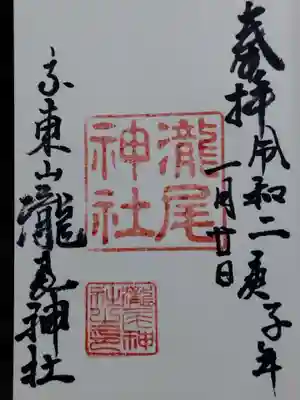 奉拝 令和二庚子年
一月廿日
瀧尾
神社
京東山瀧尾神社
瀧尾神
社之印